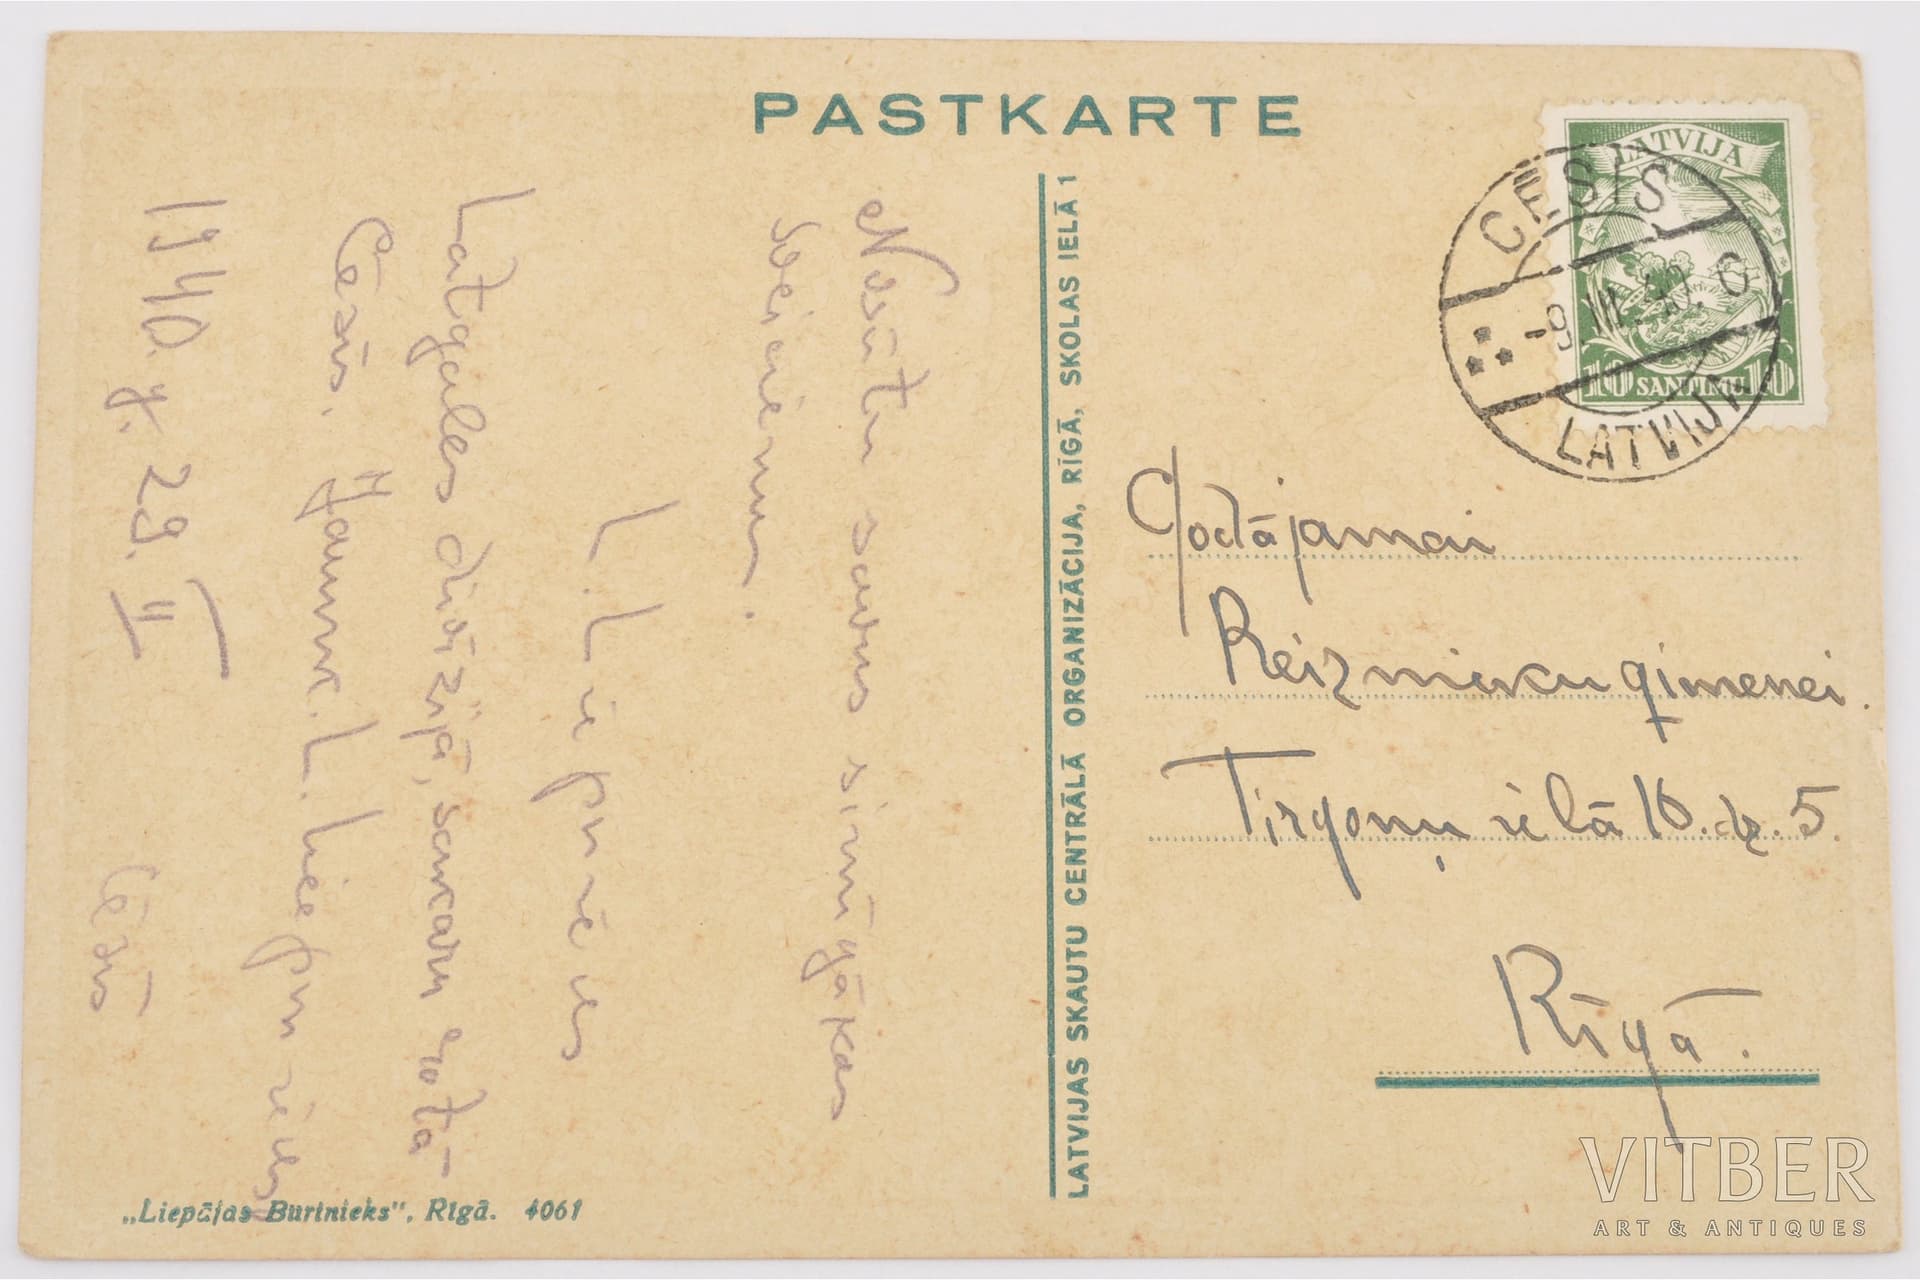 PASTKARTE
LATVIJA
10 SANTIMU 10
CĒSIS
-9 III. 40. 0
LATVIJA
Nosūtu savus sirnīgākas
sveicienu.
L. Liepnieks
Latgales divīzijā, sakaru rotā
Cēsīs. Jaunk. L. Liepnieks
1940. g. 29. II
Cēsīs
LATVIJAS SKAUTU CENTRĀLĀ ORGANIZĀCIJA, RĪGĀ, SKOLAS IELĀ 1
Godājamai
Reiznieku ģimenei.
Tirgoņu ielā 16. dz. 5.
Rīgā.
„Liepājas Burtnieks", Rīgā. 4061
VITBER
ART & ANTIQUES